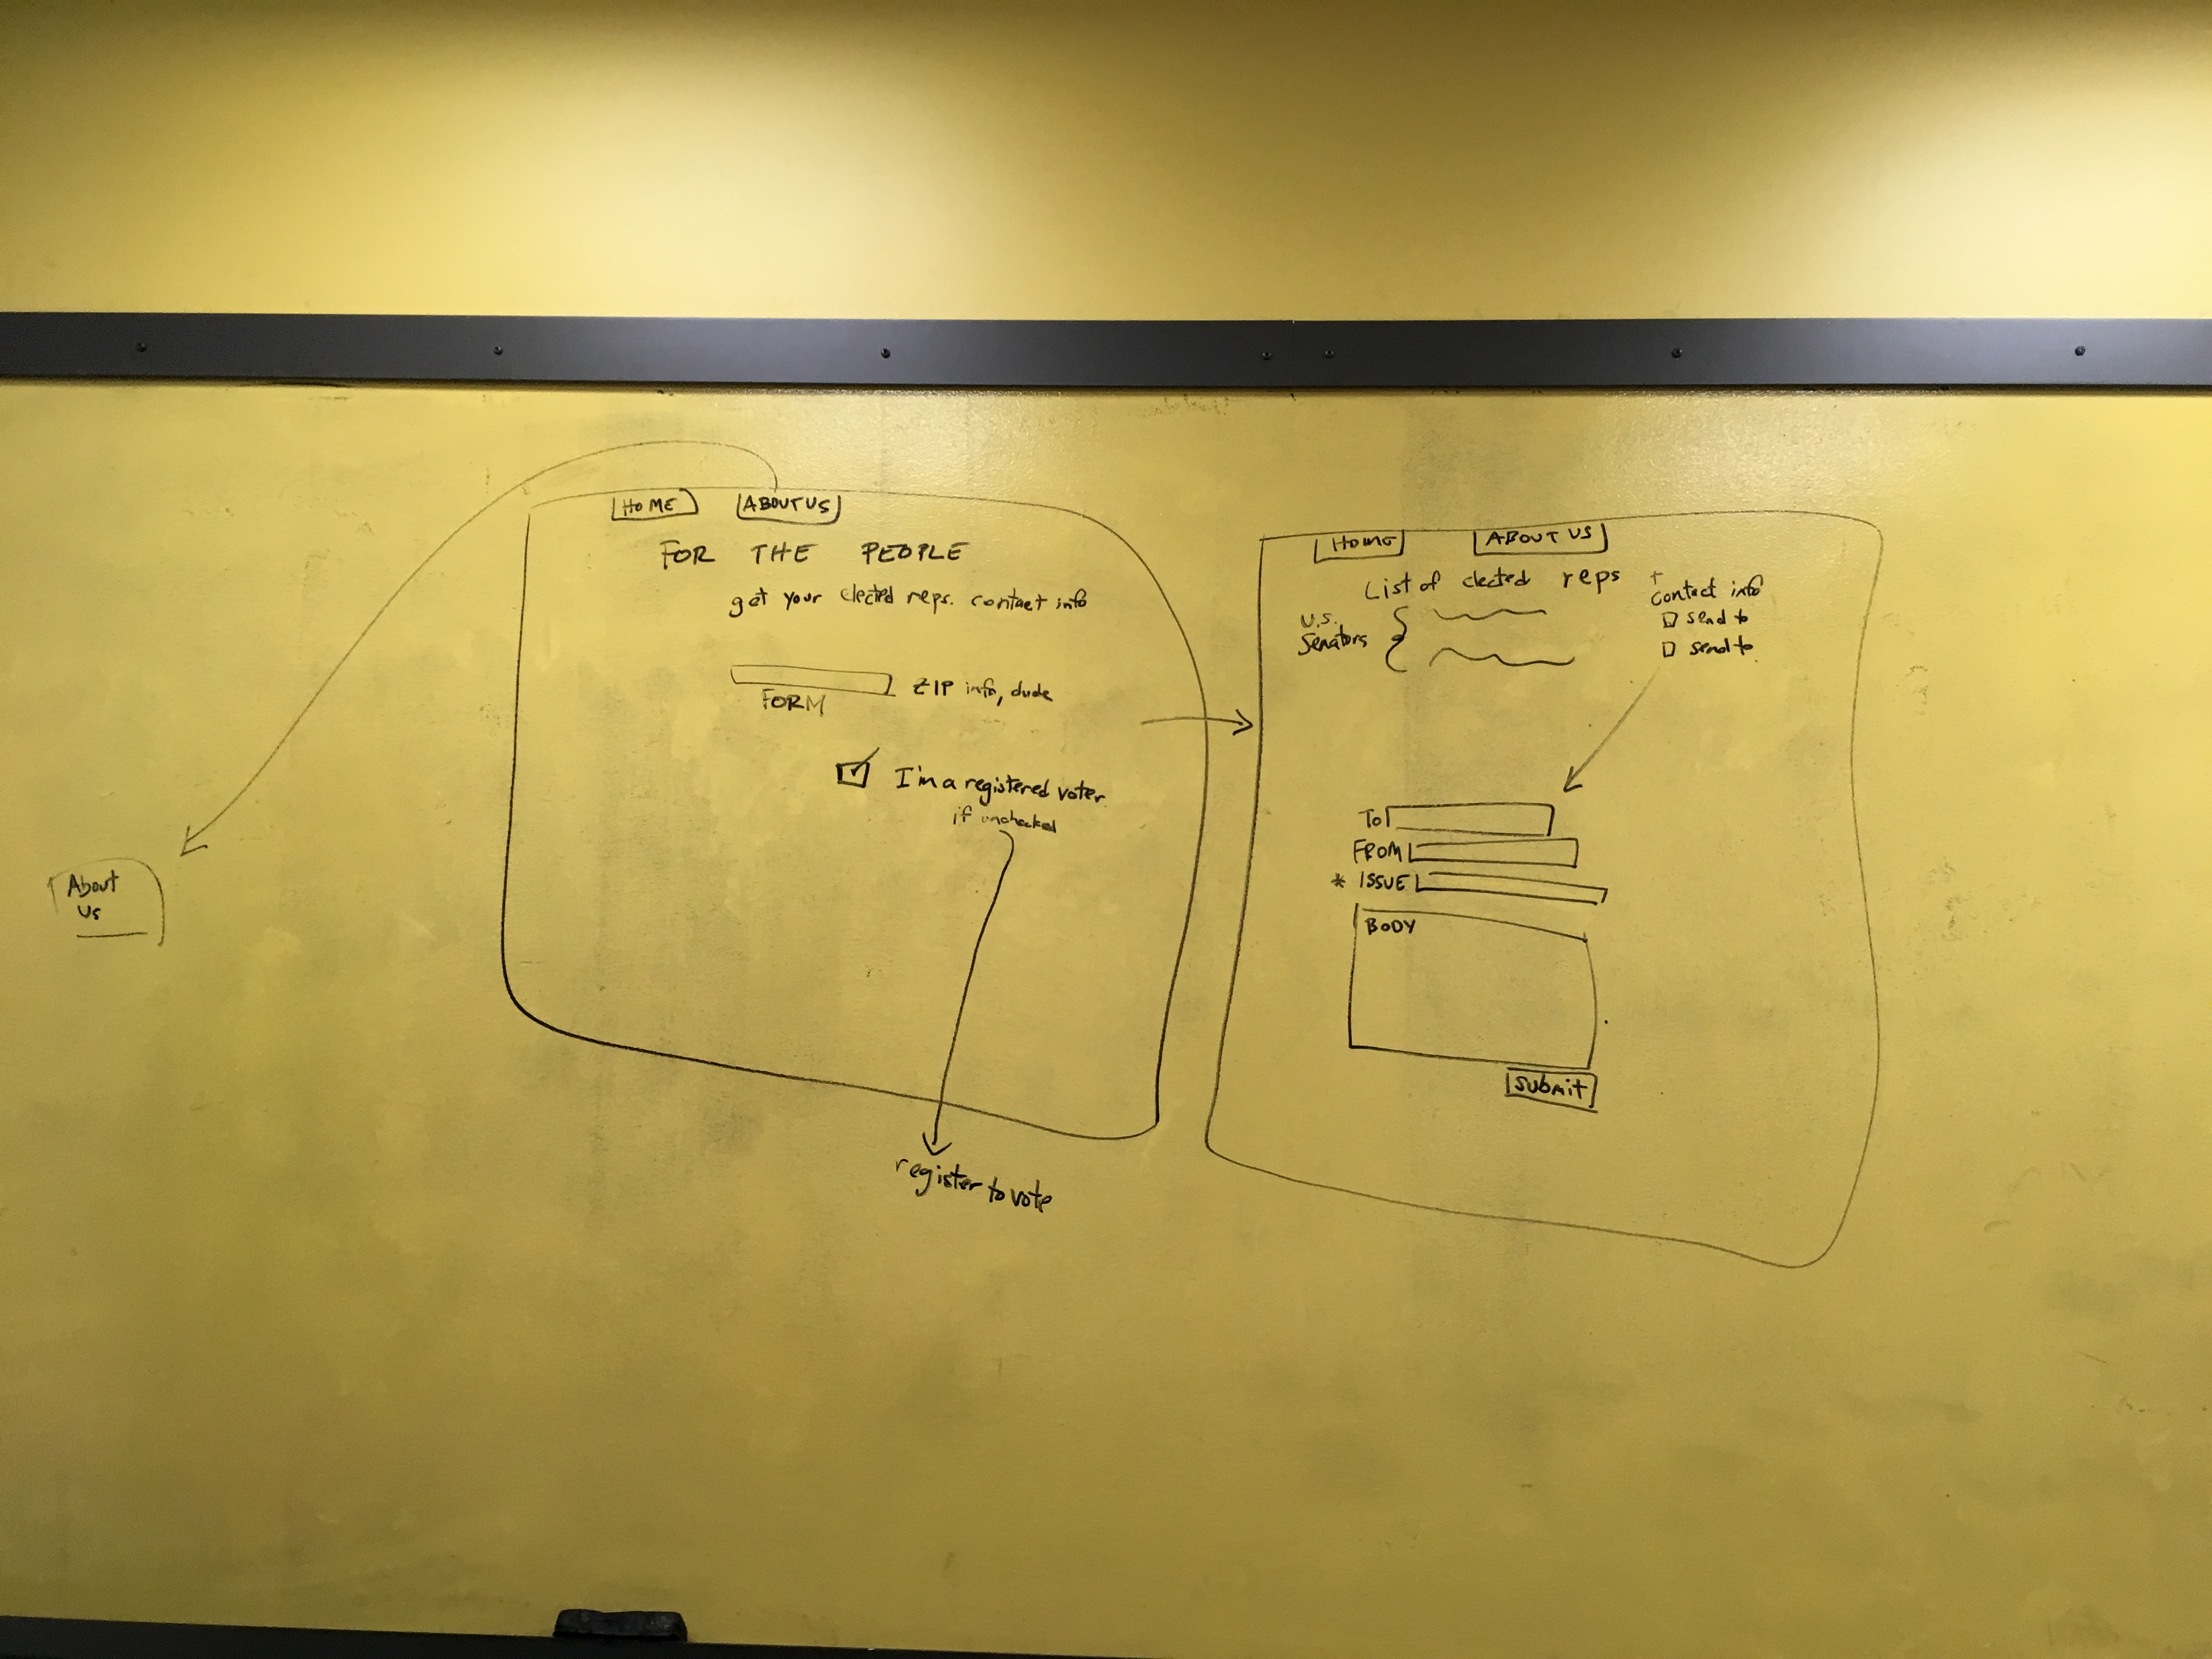 HOME
ABOUT US
FOR THE PEOPLE
get your elected reps. contact info
ZIP info, dude
FORM
I'm a registered voter
if unchecked
register to vote
About
Us
HOME
ABOUT US
List of elected reps +
contact info
U.S.
Senators
send to
send to
TO
FROM
* ISSUE
BODY
Submit